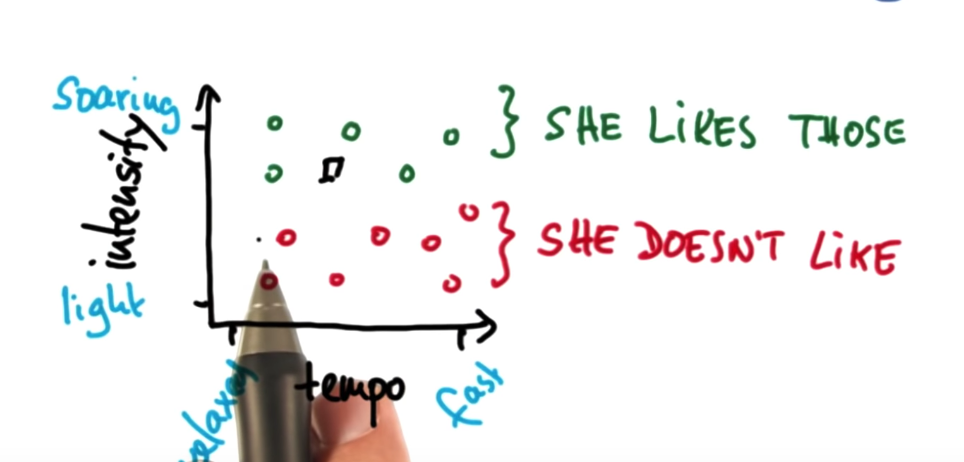 Soaring
intensity
light
SHE LIKES THOSE
SHE DOESN'T LIKE
relaxed
tempo
fast